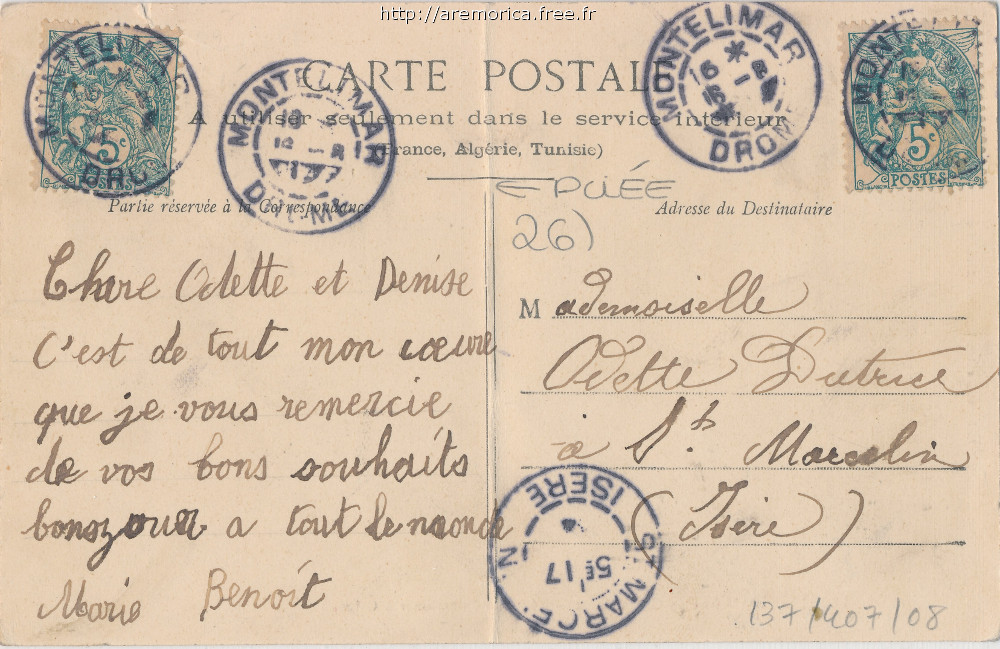 http://aremorica.free.fr
CARTE POSTALE
A utiliser seulement dans le service intérieur
(France, Algérie, Tunisie)
MONTELIMAR
DROME
5c
MONTELIMAR
DROME
MONTELIMAR
16
DROME
MONTELIMAR
5c
POSTES
EPUÉE
26)
Partie réservée à la Correspondance
Adresse du Destinataire
Chere Odette et Denise
C'est de tout mon cœure
que je vous remercie
de vos bons souhaits
bonsjour a tout le monde
Marie Benoit
Mademoiselle
Odette Dutrice
à St. Marcelin
(Isère)
ST MARCELLIN
5E 17
ISÈRE
137/407/08